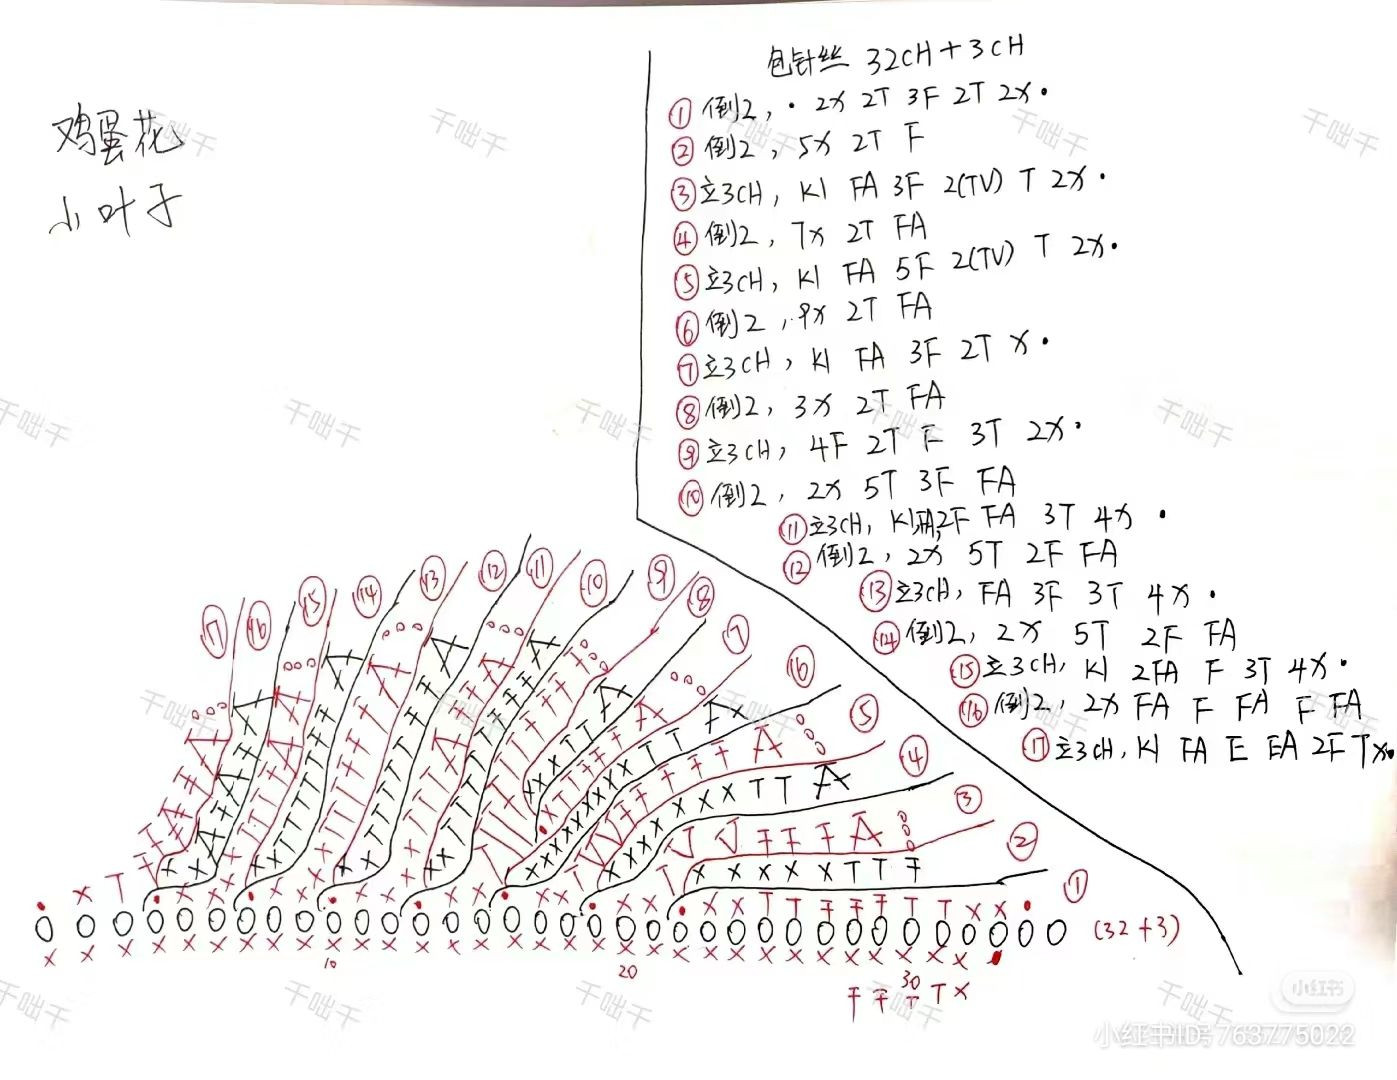 鸡蛋花
小叶子
包针丝 32CH+3CH
① 倒2, · 2X 2T 3F 2T 2X·
② 倒2, 5X 2T F
③ 立3CH, K1 FA 3F 2(TV) T 2X·
④ 倒2, 7X 2T FA
⑤ 立3CH, K1 FA 5F 2(TV) T 2X·
⑥ 倒2, 9X 2T FA
⑦ 立3CH, K1 FA 3F 2T X·
⑧ 倒2, 3X 2T FA
⑨ 立3CH, 4F 2T F 3T 2X·
⑩ 倒2, 2X 5T 3F FA
⑪ 立3CH, K1 2F FA 3T 4X ·
⑫ 倒2, 2X 5T 2F FA
⑬ 立3CH, FA 3F 3T 4X ·
⑭ 倒2, 2X 5T 2F FA
⑮ 立3CH, K1 2FA F 3T 4X·
⑯ 倒2, 2X FA F FA F FA
⑰ 立3CH, K1 FA F FA 2F T X·
⑰ ⑯ ⑮ ⑭ ⑬ ⑫ ⑪ ⑩ ⑨ ⑧ ⑦ ⑯ ⑤ ④ ③ ② ①
(32+3)
10
20
30
F F T T X
千咄千
小红书
小红书ID号 763775022